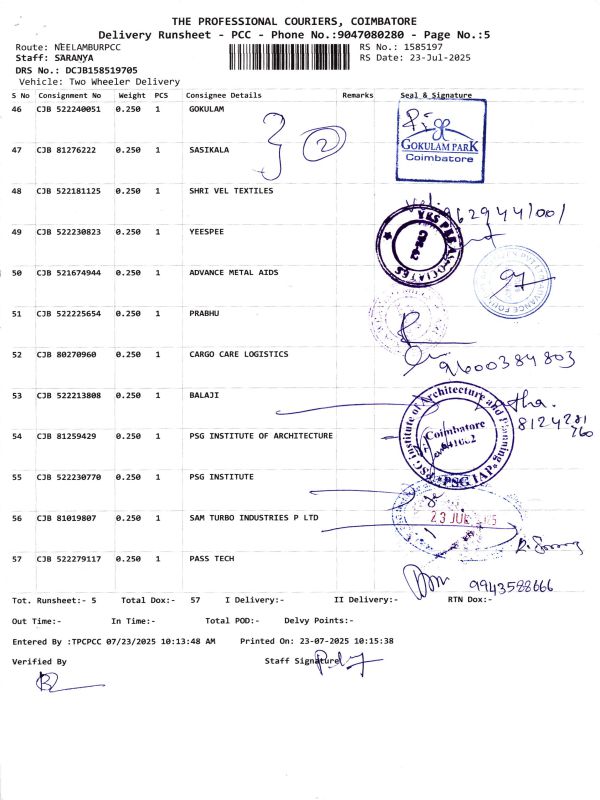 THE PROFESSIONAL COURIERS, COIMBATORE
Delivery Runsheet - PCC - Phone No.:9047080280 - Page No.:5
Route: NEELAMBURPCC RS No.: 1585197
Staff: SARANYA RS Date: 23-Jul-2025
DRS No.: DCJB158519705
Vehicle: Two Wheeler Delivery
S No Consignment No Weight PCS Consignee Details Remarks Seal & Signature
46 CJB 522240051 0.250 1 GOKULAM
GOKULAM PARK
Coimbatore
2
47 CJB 81276222 0.250 1 SASIKALA
48 CJB 522181125 0.250 1 SHRI VEL TEXTILES
49 CJB 522230823 0.250 1 YEESPEE
50 CJB 521674944 0.250 1 ADVANCE METAL AIDS
51 CJB 522225654 0.250 1 PRABHU
52 CJB 80270960 0.250 1 CARGO CARE LOGISTICS
9600384803
53 CJB 522213808 0.250 1 BALAJI
54 CJB 81259429 0.250 1 PSG INSTITUTE OF ARCHITECTURE
PSG Institute of Architecture and Planning
Coimbatore
* PSG IAP *
55 CJB 522230770 0.250 1 PSG INSTITUTE
56 CJB 81019807 0.250 1 SAM TURBO INDUSTRIES P LTD
23 JUL
57 CJB 522279117 0.250 1 PASS TECH
9943588666
Tot. Runsheet:- 5 Total Dox:- 57 I Delivery:- II Delivery:- RTN Dox:-
Out Time:- In Time:- Total POD:- Delvy Points:-
Entered By :TPCPCC 07/23/2025 10:13:48 AM Printed On: 23-07-2025 10:15:38
Verified By Staff Signature